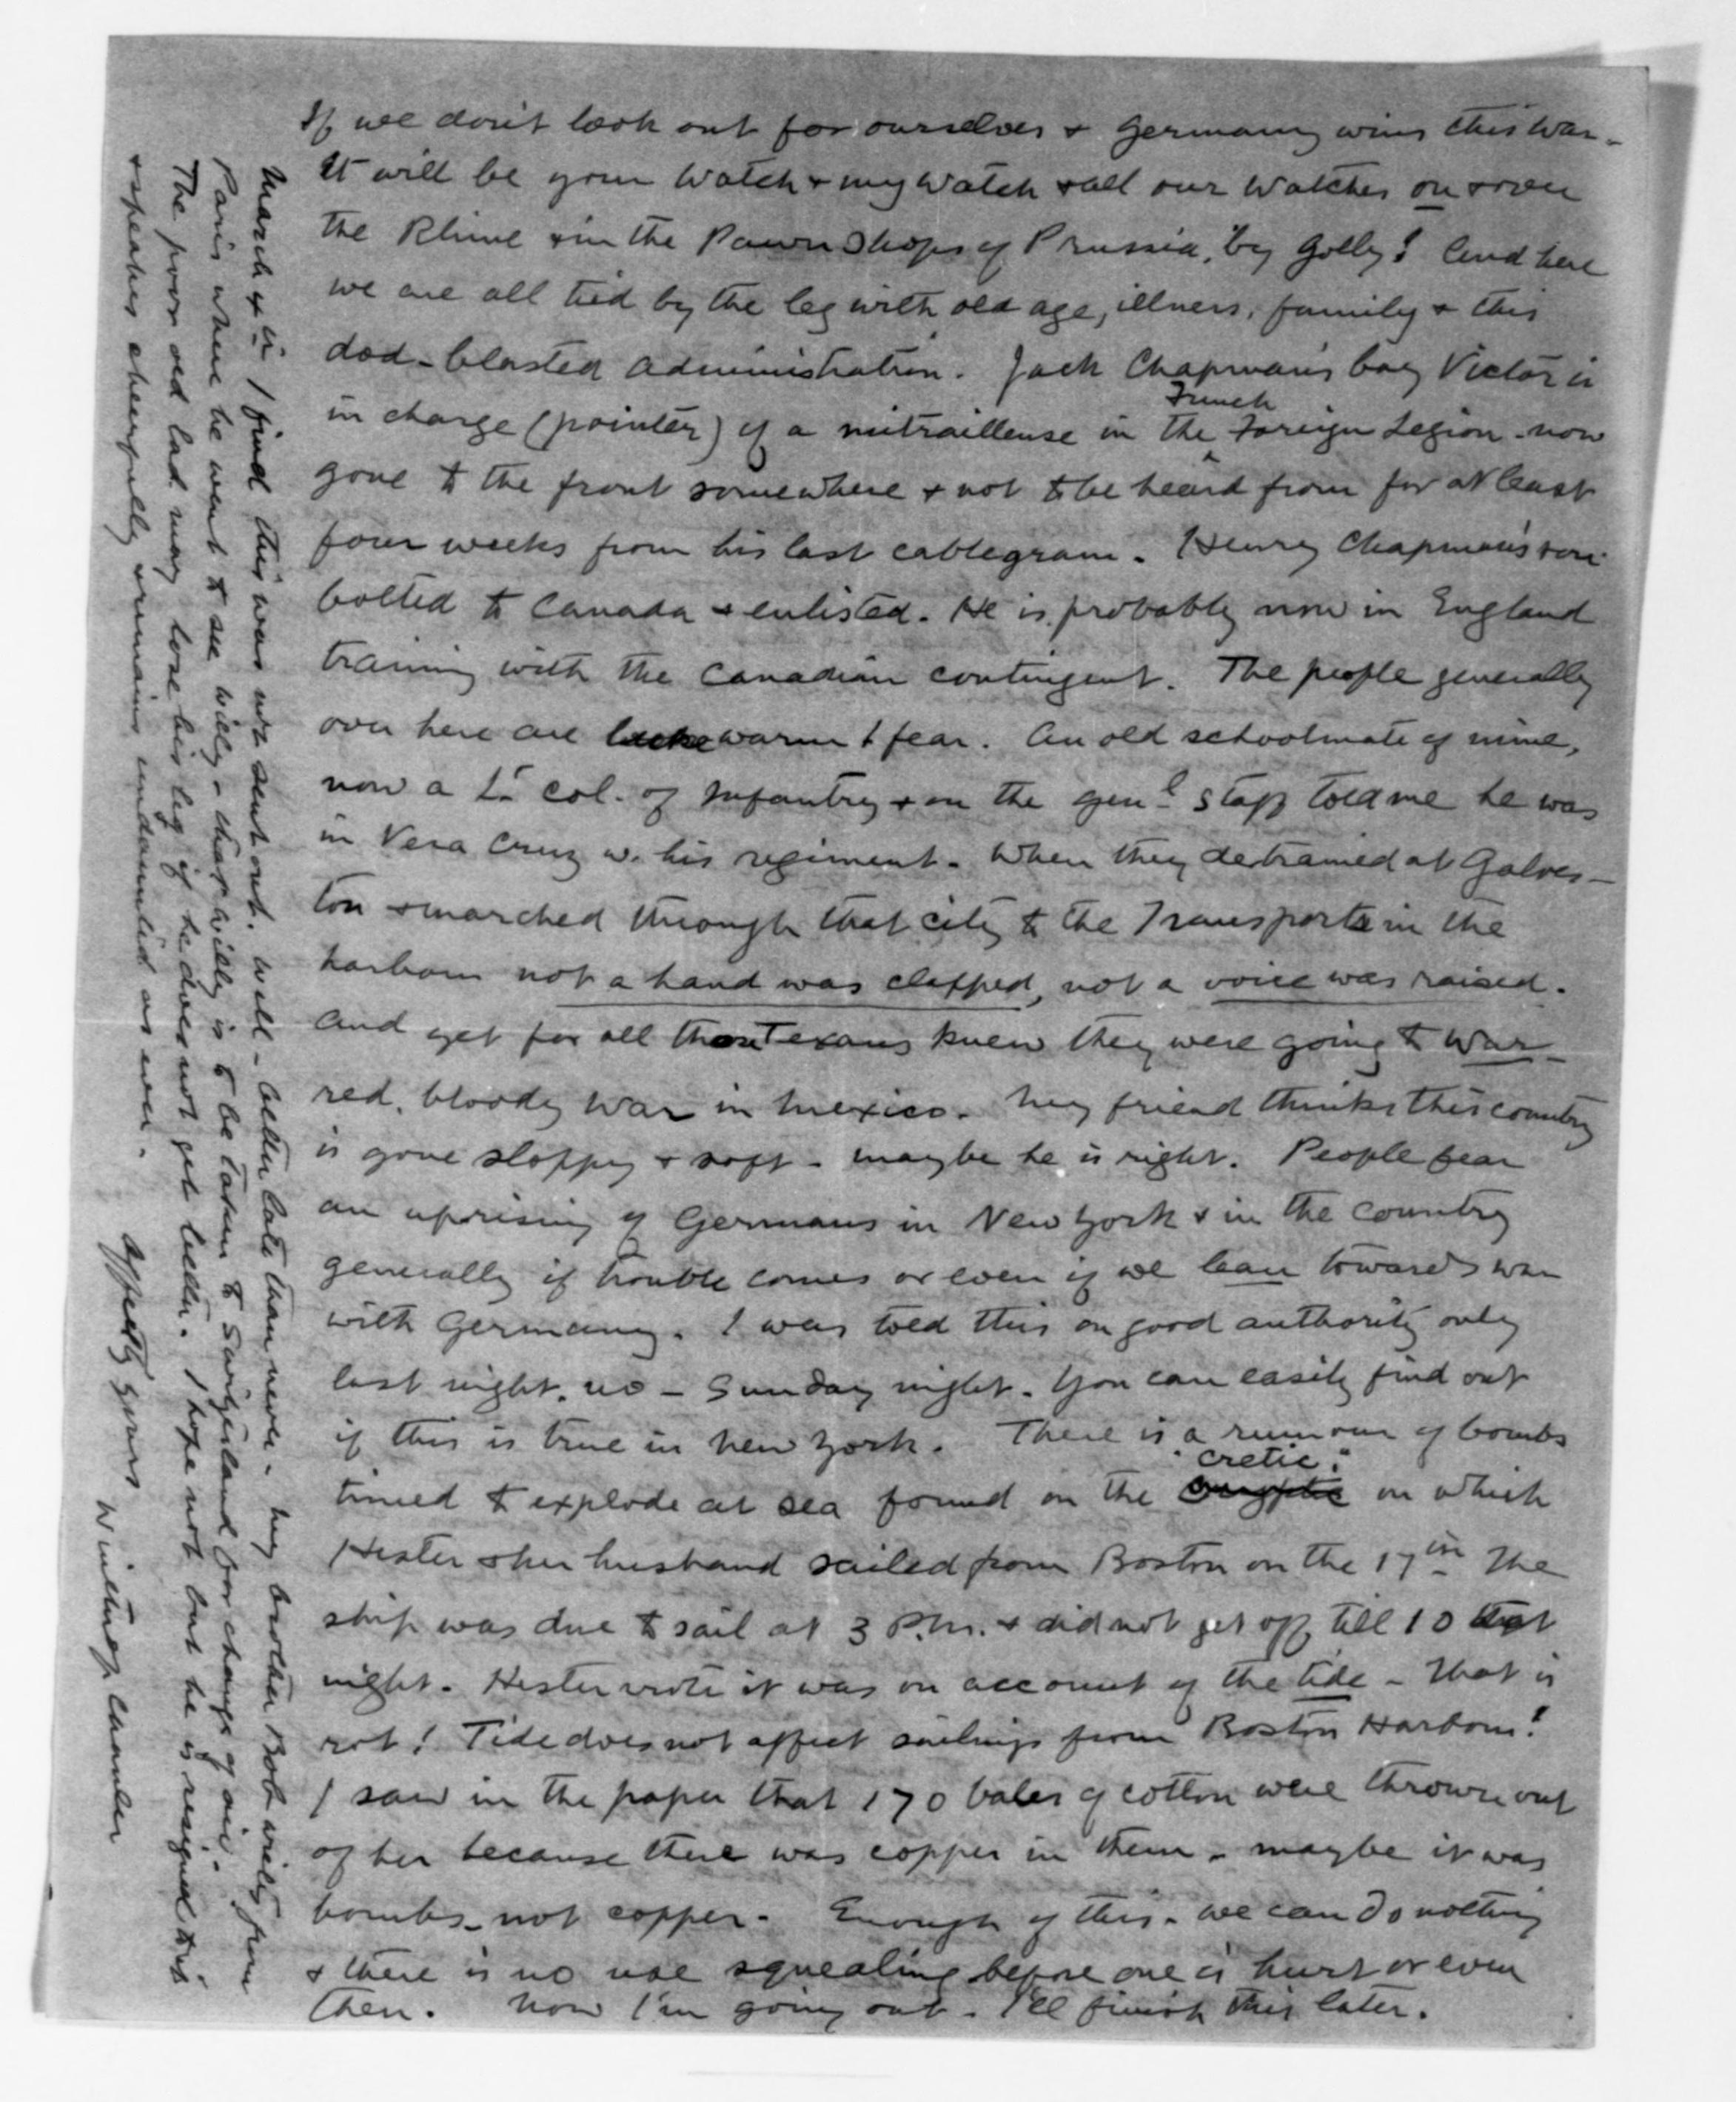 If we don't look out for ourselves & Germany wins this war -
it will be your watch & my watch & all our watches on & over
the Rhine & in the Pawn Shops of Prussia, by Golly! And here
we are all tied by the leg with old age, illness, family & this
dod-blasted administration. Jack Chapman's boy Victor is
in charge (pointer) of a mitrailleuse in the French Foreign Legion - now
gone to the front somewhere & not to be heard from for at least
four weeks from his last cablegram. Henry Chapman's son
bolted to Canada & enlisted. He is probably now in England
training with the Canadian contingent. The people generally
over here are lukewarm I fear. An old schoolmate of mine,
now a Lt Col. of Infantry & on the Genl Staff told me he was
in Vera Cruz w. his regiment. When they detrained at Galves-
ton & marched through that city to the Transports in the
harbour not a hand was clapped, not a voice was raised.
And yet for all those Texans knew they were going to war -
red, bloody war in Mexico. My friend thinks this country
is gone sloppy & soft - maybe he is right. People fear
an uprising of Germans in New York & in the country
generally if trouble comes or even if we lean towards war
with Germany. I was told this on good authority only
last night, no - Sunday night. You can easily find out
if this is true in New York. There is a rumour of bombs
timed to explode at sea found on the "Cretic" on which
Hester & her husband sailed from Boston on the 17th The
ship was due to sail at 3 P.M. & did not get off till 10 that
night. Hester wrote it was on account of the tide - That is
rot! Tide does not affect sailings from Boston Harbour!
I saw in the paper that 170 bales of cotton were thrown out
of her because there was copper in them - maybe it was
bombs - not copper. Enough of this - we can do nothing
& there is no use squealing before one is hurt or even
then. Now I'm going out - I'll finish this later.
March 4th I find this was not sent out. Well - better late than never. My brother Bob writes from
Paris where he went to see Willy - that Willy is to be taken to Switzerland for change of air.
The poor old lad may lose his leg if he does not get better. I hope not but he is resigned to it
& speaks cheerfully & remains undaunted as ever.
Affectly yours
Winthrop Chanler